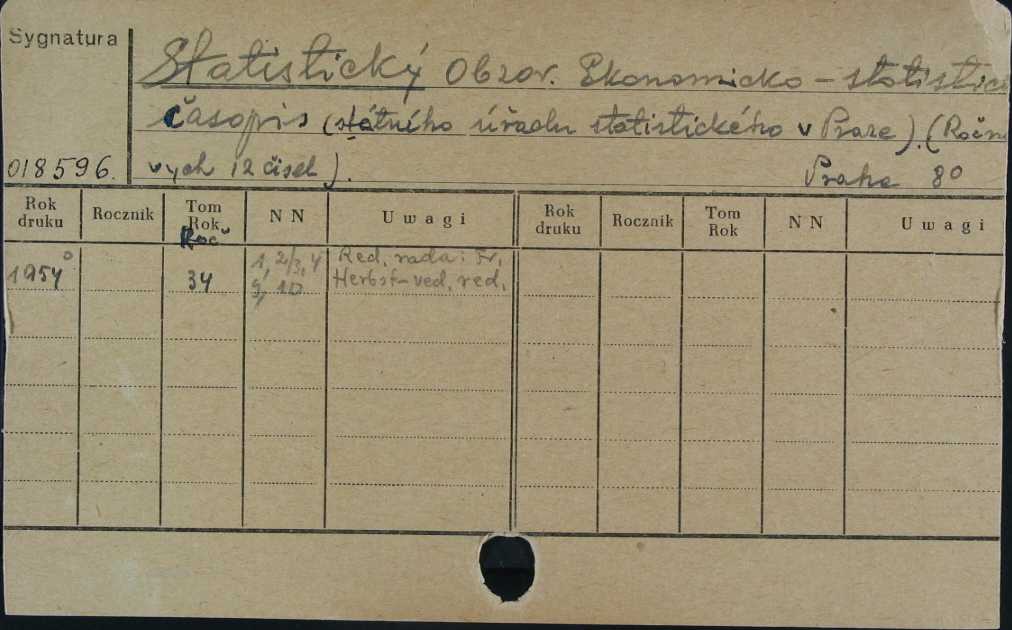 Sygnatura
Statistický Obzor. Ekonomicko - statistic
časopis (státního úřadu statistického v Praze). (Ročn
vych 12 čisel).
Praha 8°
018596.
Rok druku Rocznik Tom Rok N N Uwagi Rok druku Rocznik Tom Rok N N Uwagi
Roč
1954° 34 1, 2/3, 4 Red. rada: Fr.
9, 10 Herbst - ved. red.